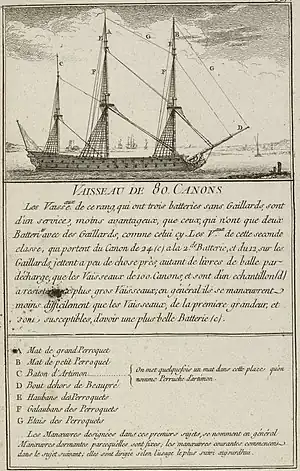 A
B
C
G
G
F
F
D
VAISSEAU DE 80. CANONS
Les Vaiss.aux de ce rang qui ont trois batteries sans Gaillards, sont
d'un service moins avantageux, que ceux, qui n'ont que deux
Batteri avec des Gaillards, comme celui cy. Les V.aux de cette seconde
classe, qui portent du Canon de 24 (c) a la 2.de Batterie, et du 12, sur les
Gaillards, jettent a peu de chose près autant de livres de balle par
décharge, que les Vaisseaux de 100. Canons, et sont d'un echantillon (d)
a resister aux plus gros Vaisseaux; en général ils se manœuvrent
moins difficilement que les Vaisseaux, de la premiere grandeur, et
sont susceptibles, d'avoir une plus belle Batterie (e).
A Mat de grand Perroquet
B Mat de petit Perroquet
C Baton d'Artimon
D Bout dehors de Beaupré
E Haubans des Perroquets
F Galaubans des Perroquets
G Etais des Perroquets
On met quelquefois un mat dans cette place qu'on
nomme Perruche d'artimon.
Les Manœuvres designées dans ces premiers sujets, se nomment en général
Manœuvres dormantes parcequ'elles sont fixes; les manœuvres courantes commencent
dans le sujet suivant; elles sont dirigés selon l'usage le plus suivi aujourd'hui.